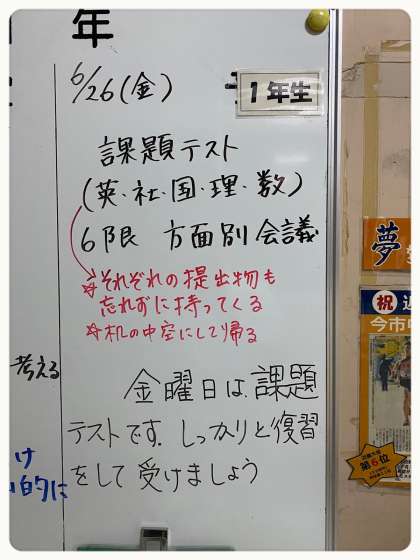 年
6/26(金)
1年生
課題テスト
(英・社・国・理・数)
6限 方面別会議
☆それぞれの提出物も
忘れずに持ってくる
☆机の中空にして帰る
金曜日は課題
テストです。しっかりと復習
をして受けましょう
考える
け
的に
夢
祝
今市
第6位